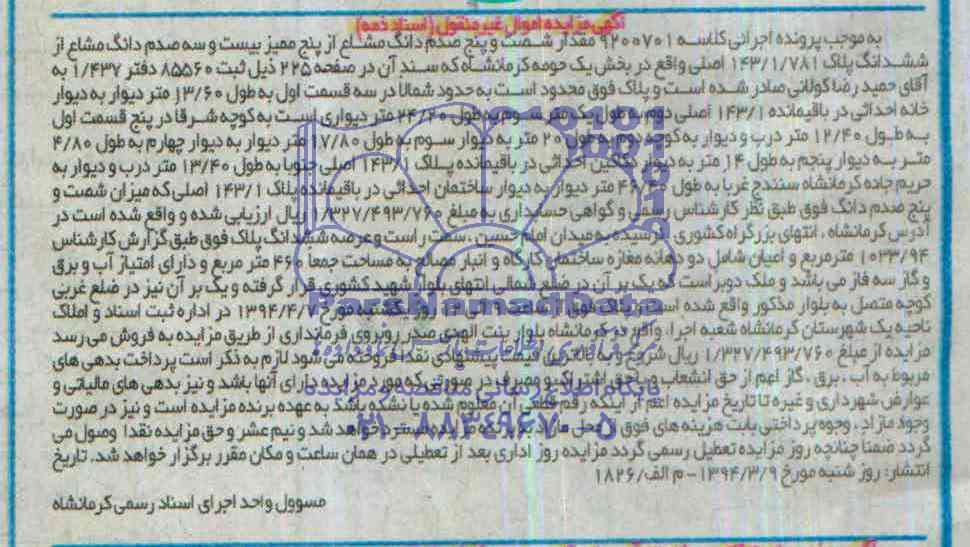 آگهی مزایده اموال غیر منقول (اسناد ذمه)
به موجب پرونده اجرائی کلاسه ۹۲۰۰۷۰۱ مقدار شصت و پنج صدم دانگ مشاع از پنج ممیز بیست و سه صدم دانگ مشاع از
ششدانگ پلاک ۱۴۳/۱/۷۸۱ اصلی واقع در بخش یک حومه کرمانشاه که سند آن در صفحه ۲۲۵ ذیل ثبت ۸۵۵۶۰ دفتر ۱/۴۳۷ به
آقای حمید رضا کولانی صادر شده است و پلاک فوق محدود است به حدود شمالا در سه قسمت اول به طول ۱۳/۶۰ متر دیوار به دیوار
خانه احداثی در باقیمانده ۱۴۳/۱ اصلی دوم به طول یک متر سوم به طول ۲۴/۲۰ متر دیواری است به کوچه شرقا در پنج قسمت اول
به طول ۱۲/۴۰ متر درب و دیوار به کوچه دوم به طول ۲۰ متر به دیوار سوم به طول ۷/۸۰ متر دیوار به دیوار چهارم به طول ۴/۸۰
متر به دیوار پنجم به طول ۱۴ متر به دیوار دکاکین احداثی در باقیمانده پلاک ۱۴۳/۱ اصلی جنوبا به طول ۱۳/۴۰ متر درب و دیوار به
حریم جاده کرمانشاه سنندج غربا به طول ۴۶/۴۰ متر دیوار به دیوار ساختمان احداثی در باقیمانده پلاک ۱۴۳/۱ اصلی که میزان شصت و
پنج صدم دانگ فوق طبق نظر کارشناس رسمی و گواهی حسابداری به مبلغ ۱/۳۲۷/۴۹۳/۷۶۰ ریال ارزیابی شده و واقع شده است در
آدرس کرمانشاه ، انتهای بزرگراه کشوری نرسیده به میدان امام حسین ، سمت راست و عرصه ششدانگ پلاک فوق طبق گزارش کارشناس
۱۰۳۳/۹۴ مترمربع و اعیان شامل دو دهانه مغازه ساختمان کارگاه و انبار مصالح به مساحت جمعا ۴۶۰ متر مربع و دارای امتیاز آب و برق
و گاز سه فاز می باشد و ملک دوبر است که یک بر آن در ضلع شمالی انتهای بلوار شهید کشوری قرار گرفته و یک بر آن نیز در ضلع غربی
کوچه متصل به بلوار مذکور واقع شده است پلاک فوق از ساعت ۹ الی ۱۲ روز یکشنبه مورخ ۱۳۹۴/۴/۷ در اداره ثبت اسناد و املاک
ناحیه یک شهرستان کرمانشاه شعبه اجرا، واقع در کرمانشاه بلوار بنت الهدی صدر روبروی فرمانداری از طریق مزایده به فروش می رسد
مزایده از مبلغ ۱/۳۲۷/۴۹۳/۷۶۰ ریال شروع و به بالاترین قیمت پیشنهادی نقدا فروخته می شود لازم به ذکر است پرداخت بدهی های
مربوط به آب ، برق ، گاز اعم از حق انشعاب و یا حق اشتراک و مصرف در صورتی که مورد مزایده دارای آنها باشد و نیز بدهی های مالیاتی و
عوارض شهرداری و غیره تا تاریخ مزایده اعم از اینکه رقم قطعی آن معلوم شده یا نشده باشد به عهده برنده مزایده است و نیز در صورت
وجود مازاد ، وجوه پرداختی بابت هزینه های فوق از محل مازاد به برنده مزایده مسترد خواهد شد و نیم عشر و حق مزایده نقدا وصول می
گردد ضمنا چنانچه روز مزایده تعطیل رسمی گردد مزایده روز اداری بعد از تعطیلی در همان ساعت و مکان مقرر برگزار خواهد شد. تاریخ
انتشار: روز شنبه مورخ ۱۳۹۴/۳/۹ - م الف/۱۸۲۶
مسوول واحد اجرای اسناد رسمی کرمانشاه
ParsNamadData
پایگاه اطلاع رسانی مناقصه و مزایده
۰۲۱-۸۸۳۴۹۶۷۰-۵